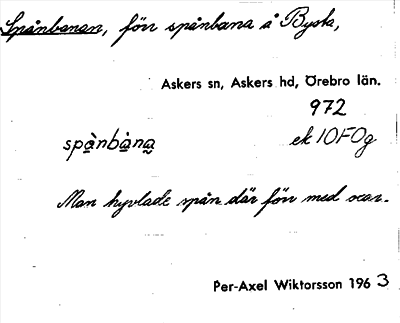 Spånbanan, förr spånbana å Bysta,
Askers sn, Askers hd, Örebro län.
972
spå̀nbå̀na̰ ek 10F0g
Man hyvlade spån där förr med oxar.
Per-Axel Wiktorsson 1963